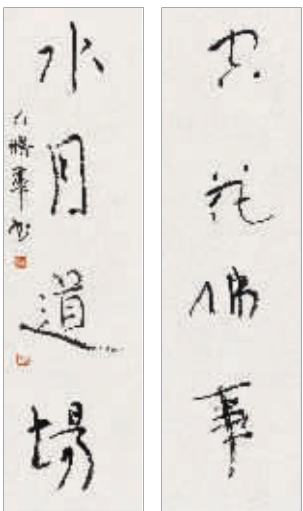 空花佛事
水月道場